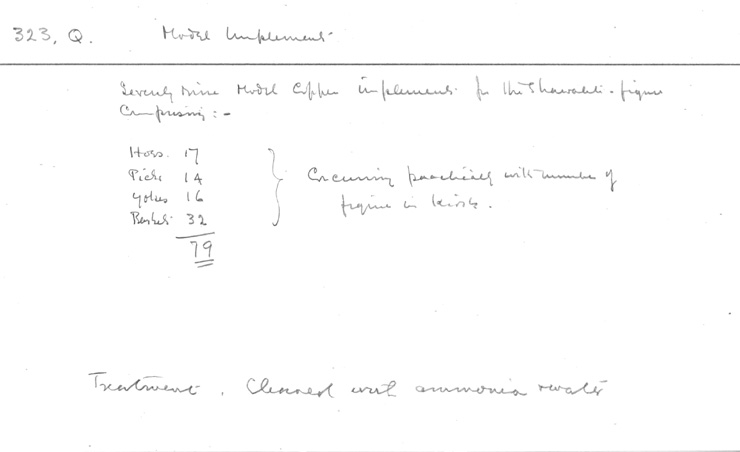 323, Q. Model Implements
Seventy nine Model Copper implements for the Shawabti-figures
Comprising :-
Hoes. 17
Picks 14
Yokes 16
Baskets 32
79
practically with number of
figures in kiosk.
Treatment. Cleaned with ammonia & water